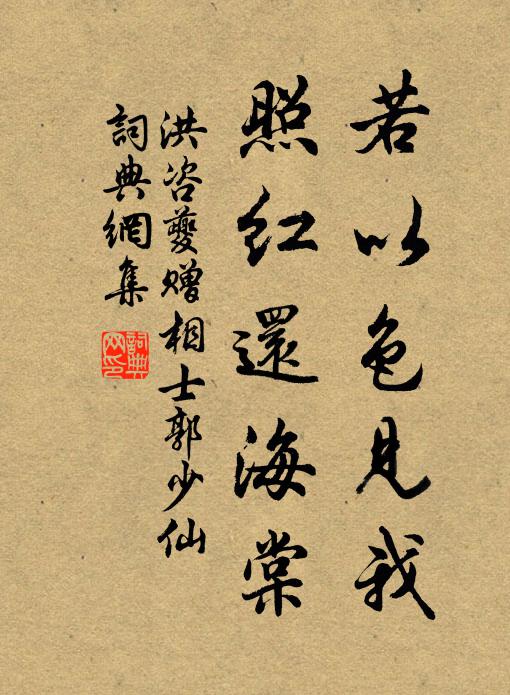 若以色見我
照紅還海棠
洪咨夔贈相士郭少仙
詞典網集
詞典網印